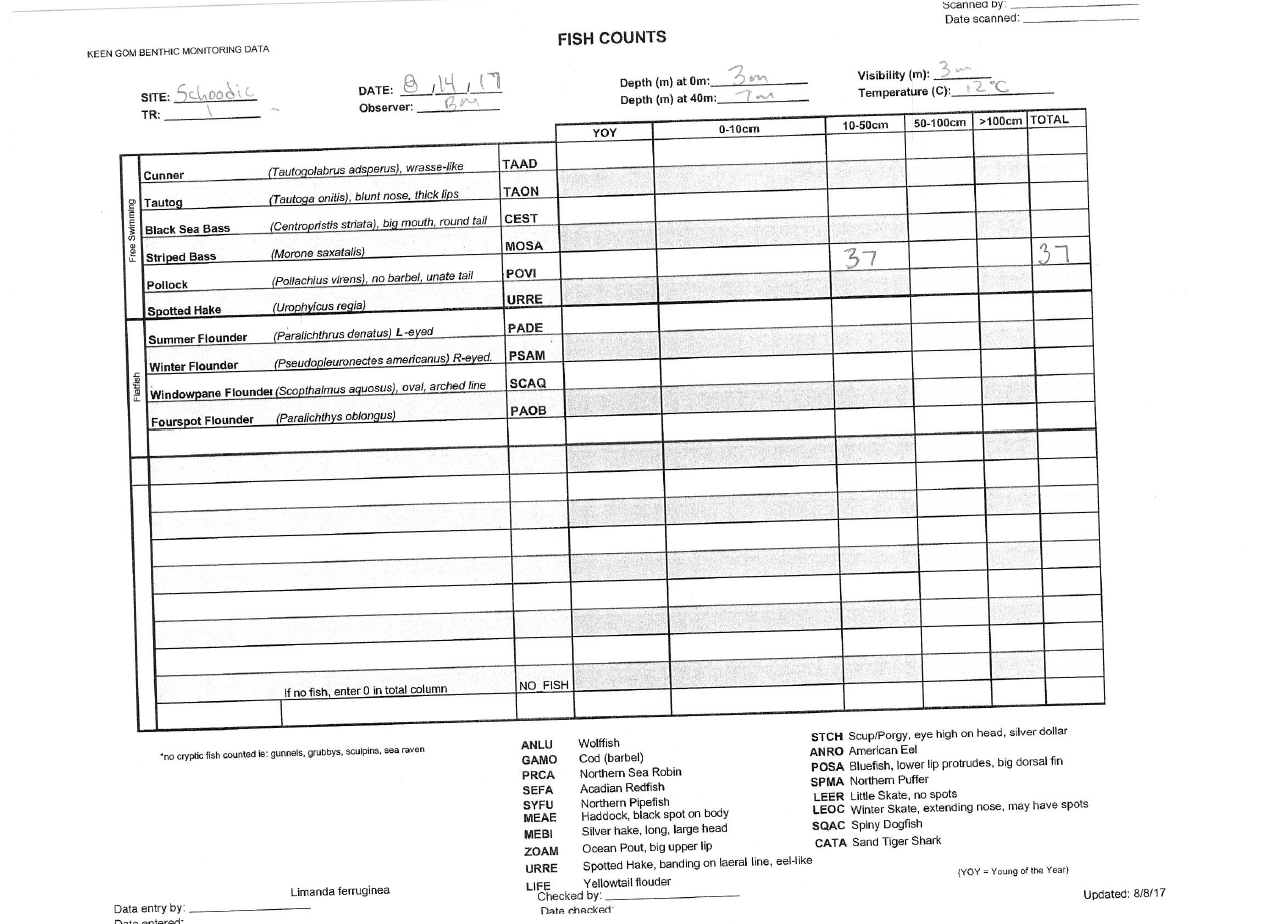 Scanned by: ____________
Date scanned: ____________
KEEN GOM BENTHIC MONITORING DATA
FISH COUNTS
SITE: Schoodic DATE: 8 , 14 , 17 Depth (m) at 0m: 3m Visibility (m): 3m
TR: 1 Observer: Bm Depth (m) at 40m: 7m Temperature (C): 12°C
YOY 0-10cm 10-50cm 50-100cm >100cm TOTAL
Free Swimming
Cunner (Tautogolabrus adsperus), wrasse-like TAAD
Tautog (Tautoga onitis), blunt nose, thick lips TAON
Black Sea Bass (Centropristis striata), big mouth, round tail CEST
Striped Bass (Morone saxatalis) MOSA
Pollock (Pollachius virens), no barbel, unate tail POVI 37 37
Spotted Hake (Urophyicus regia) URRE
Flatfish
Summer Flounder (Paralichthrus denatus) L-eyed PADE
Winter Flounder (Pseudopleuronectes americanus) R-eyed. PSAM
Windowpane Flounder (Scopthalmus aquosus), oval, arched line SCAQ
Fourspot Flounder (Paralichthys oblongus) PAOB
If no fish, enter 0 in total column NO FISH
*no cryptic fish counted ie: gunnels, grubbys, sculpins, sea raven
ANLU Wolffish
GAMO Cod (barbel)
PRCA Northern Sea Robin
SEFA Acadian Redfish
SYFU Northern Pipefish
MEAE Haddock, black spot on body
MEBI Silver hake, long, large head
ZOAM Ocean Pout, big upper lip
URRE Spotted Hake, banding on laeral line, eel-like
LIFE Yellowtail flouder
STCH Scup/Porgy, eye high on head, silver dollar
ANRO American Eel
POSA Bluefish, lower lip protrudes, big dorsal fin
SPMA Northern Puffer
LEER Little Skate, no spots
LEOC Winter Skate, extending nose, may have spots
SQAC Spiny Dogfish
CATA Sand Tiger Shark
(YOY = Young of the Year)
Limanda ferruginea
Data entry by: ____________ Checked by: ____________ Updated: 8/8/17
Data entered: Date checked: